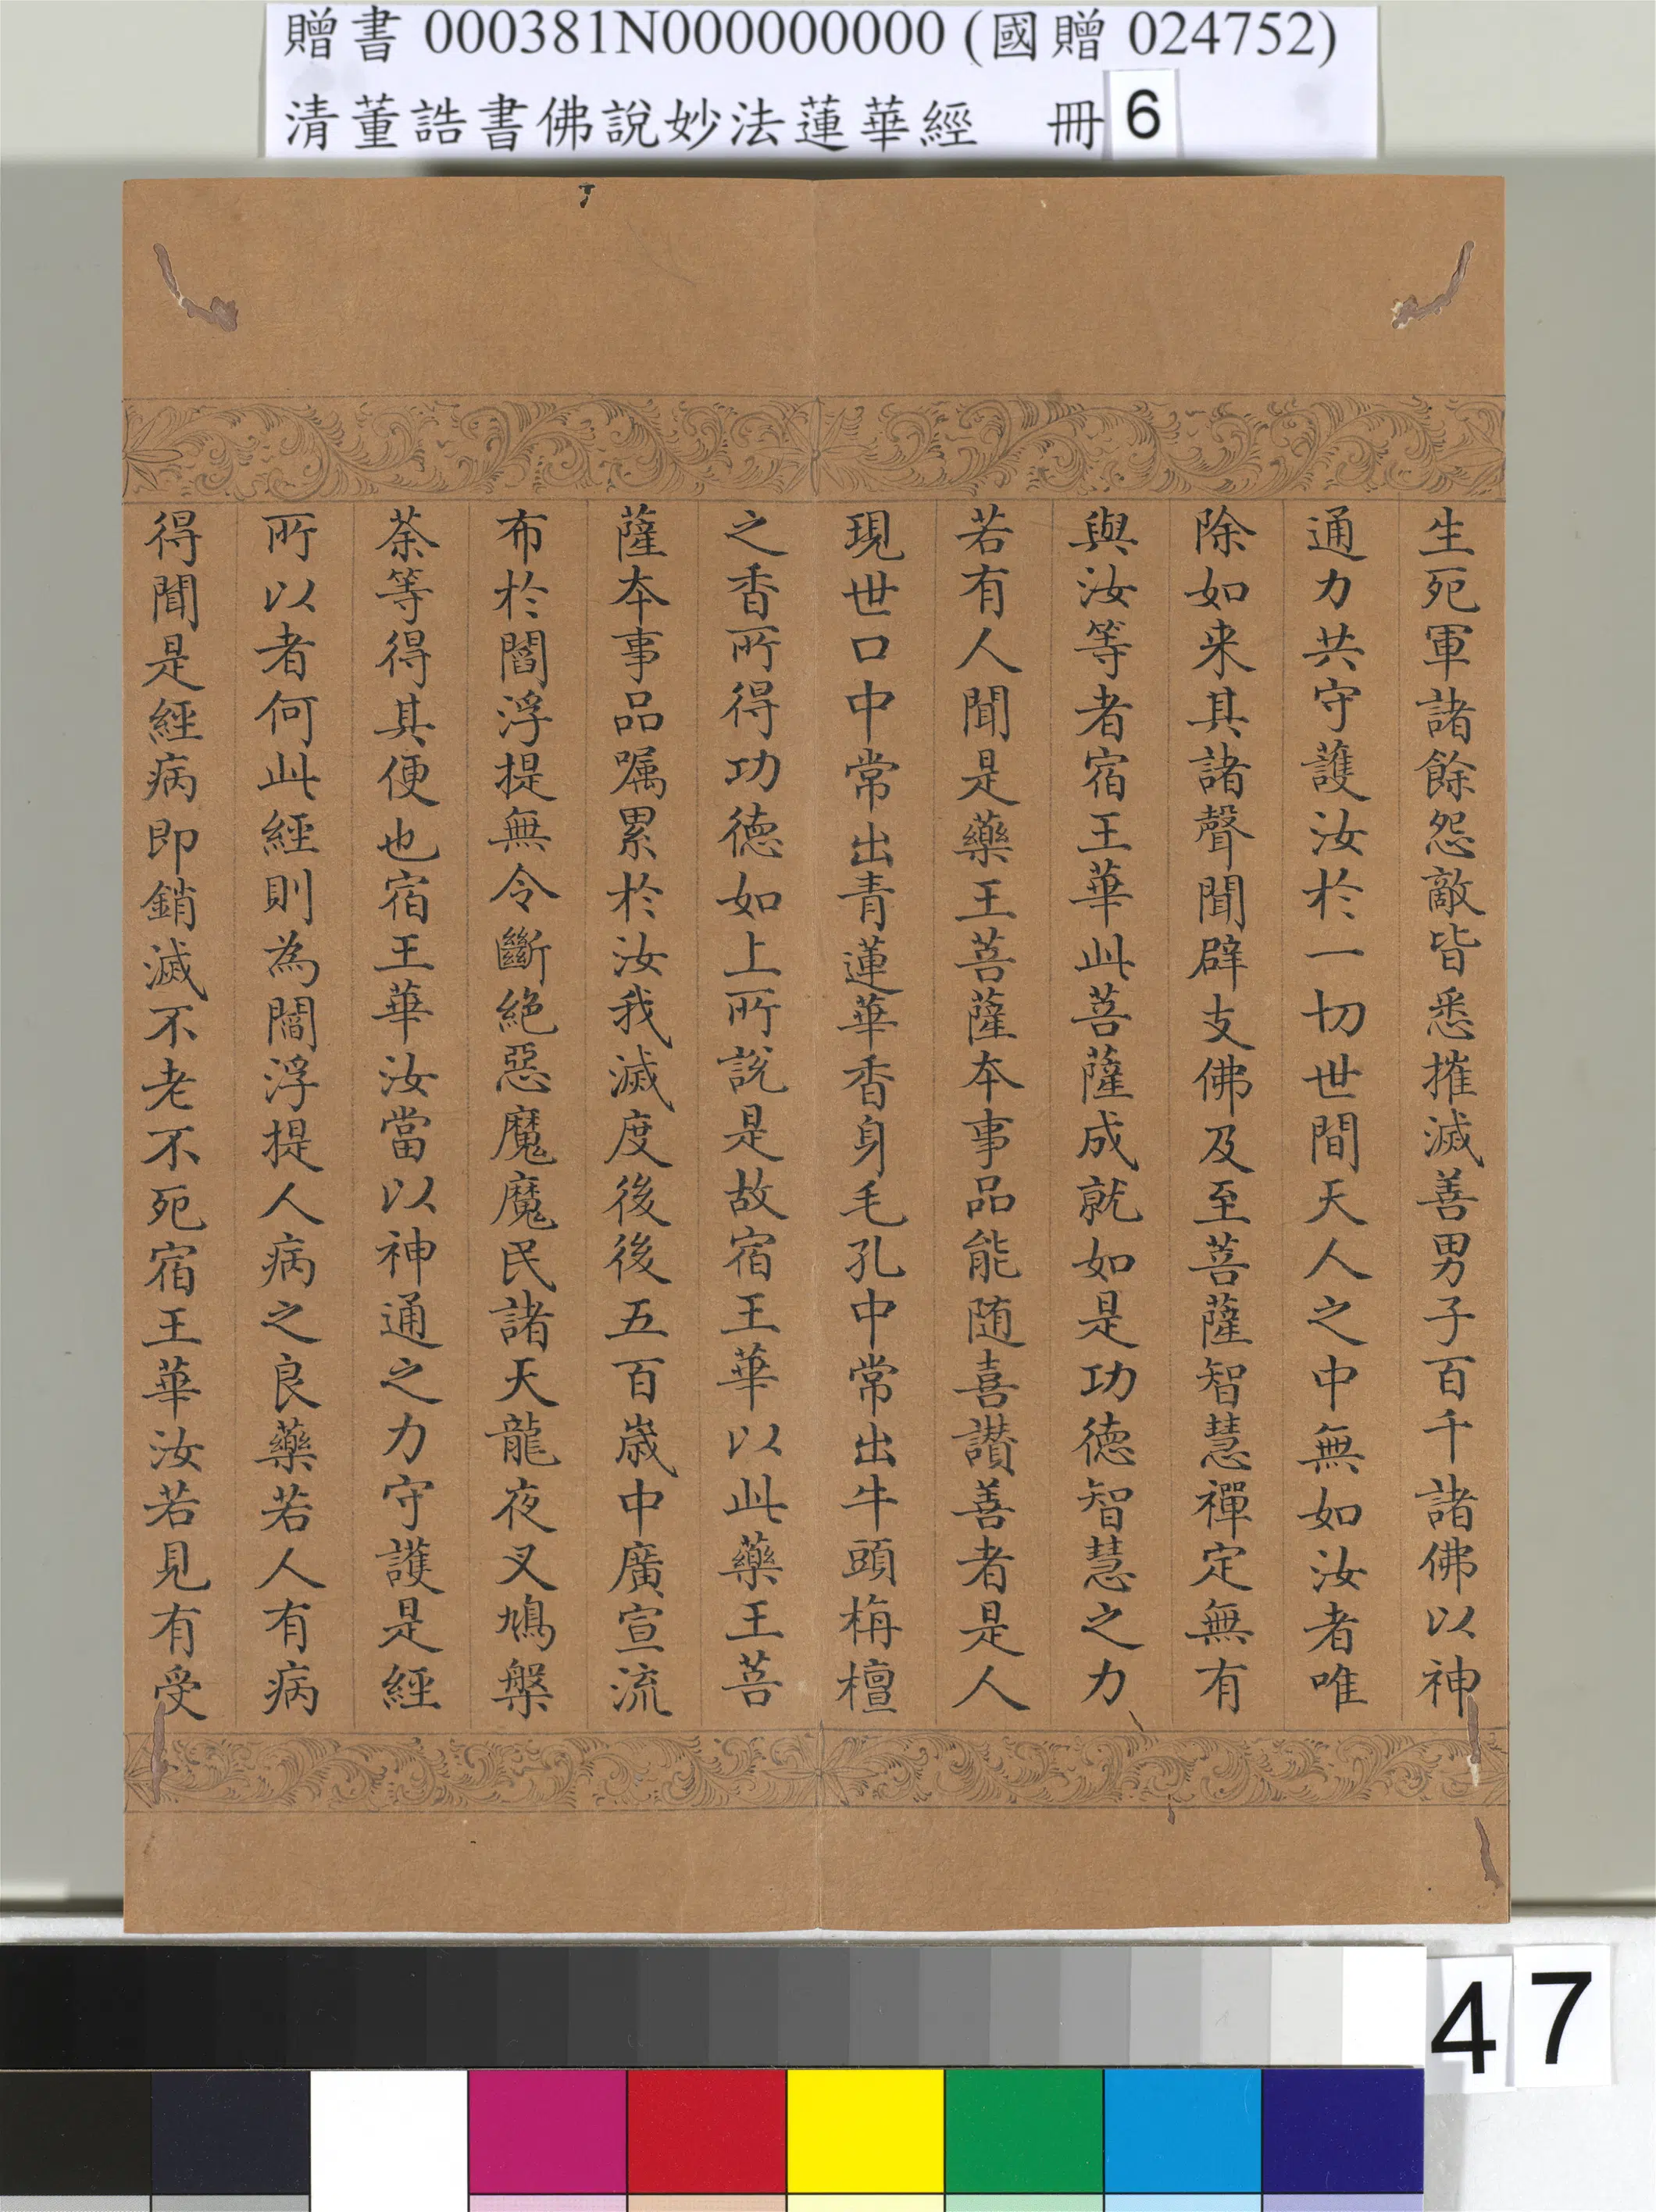 贈書 000381N000000000 (國贈 024752)
清董誥書佛說妙法蓮華經 冊 6
生死軍諸餘怨敵皆悉摧滅善男子百千諸佛以神
通力共守護汝於一切世間天人之中無如汝者唯
除如来其諸聲聞辟支佛及至菩薩智慧禪定無有
與汝等者宿王華此菩薩成就如是功德智慧之力
若有人聞是藥王菩薩本事品能随喜讃善者是人
現世口中常出青蓮華香身毛孔中常出牛頭栴檀
之香所得功德如上所說是故宿王華以此藥王菩
薩本事品嘱累於汝我滅度後後五百歲中廣宣流
布於閻浮提無令斷絕惡魔魔民諸天龍夜叉鳩槃
荼等得其便也宿王華汝當以神通之力守護是經
所以者何此經則為閻浮提人病之良藥若人有病
得聞是經病即銷滅不老不死宿王華汝若見有受
47